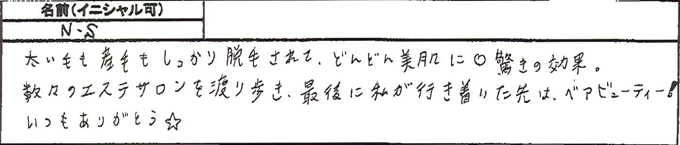 名前(イニシャル可)
N・S
太い毛も産毛もしっかり脱毛されて、どんどん美肌に○驚きの効果。
数々のエステサロンを渡り歩き、最後に私が行き着いた先は、ベアビューティー!
いつもありがとう☆